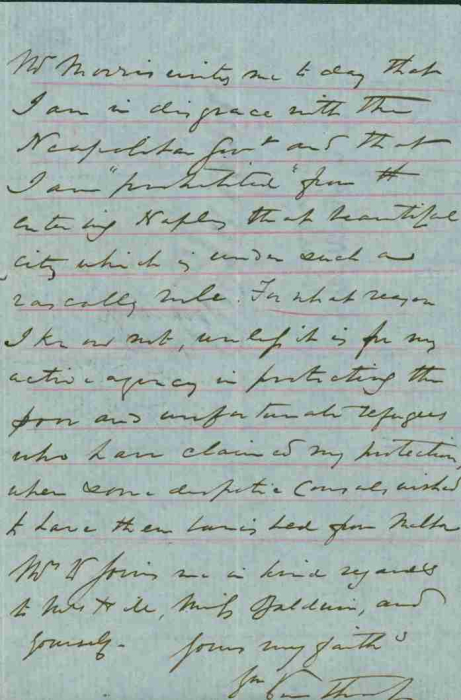 Mr Morris writes me to day that
I am in disgrace with the
Neapolitan Govt and that
I am "prohibited" from
entering Naples that beautiful
city which is under such a
rascally rule. For what reason
I know not, unless it is for my
active agency in protecting the
poor and unfortunate refugees
who have claimed my protection,
when some despotic Consuls wished
to have them banished from Malta
Mrs W joins me in kind regards
to Mrs H de, Miss Baldwin, and
yourself. Yours very faith
Wm